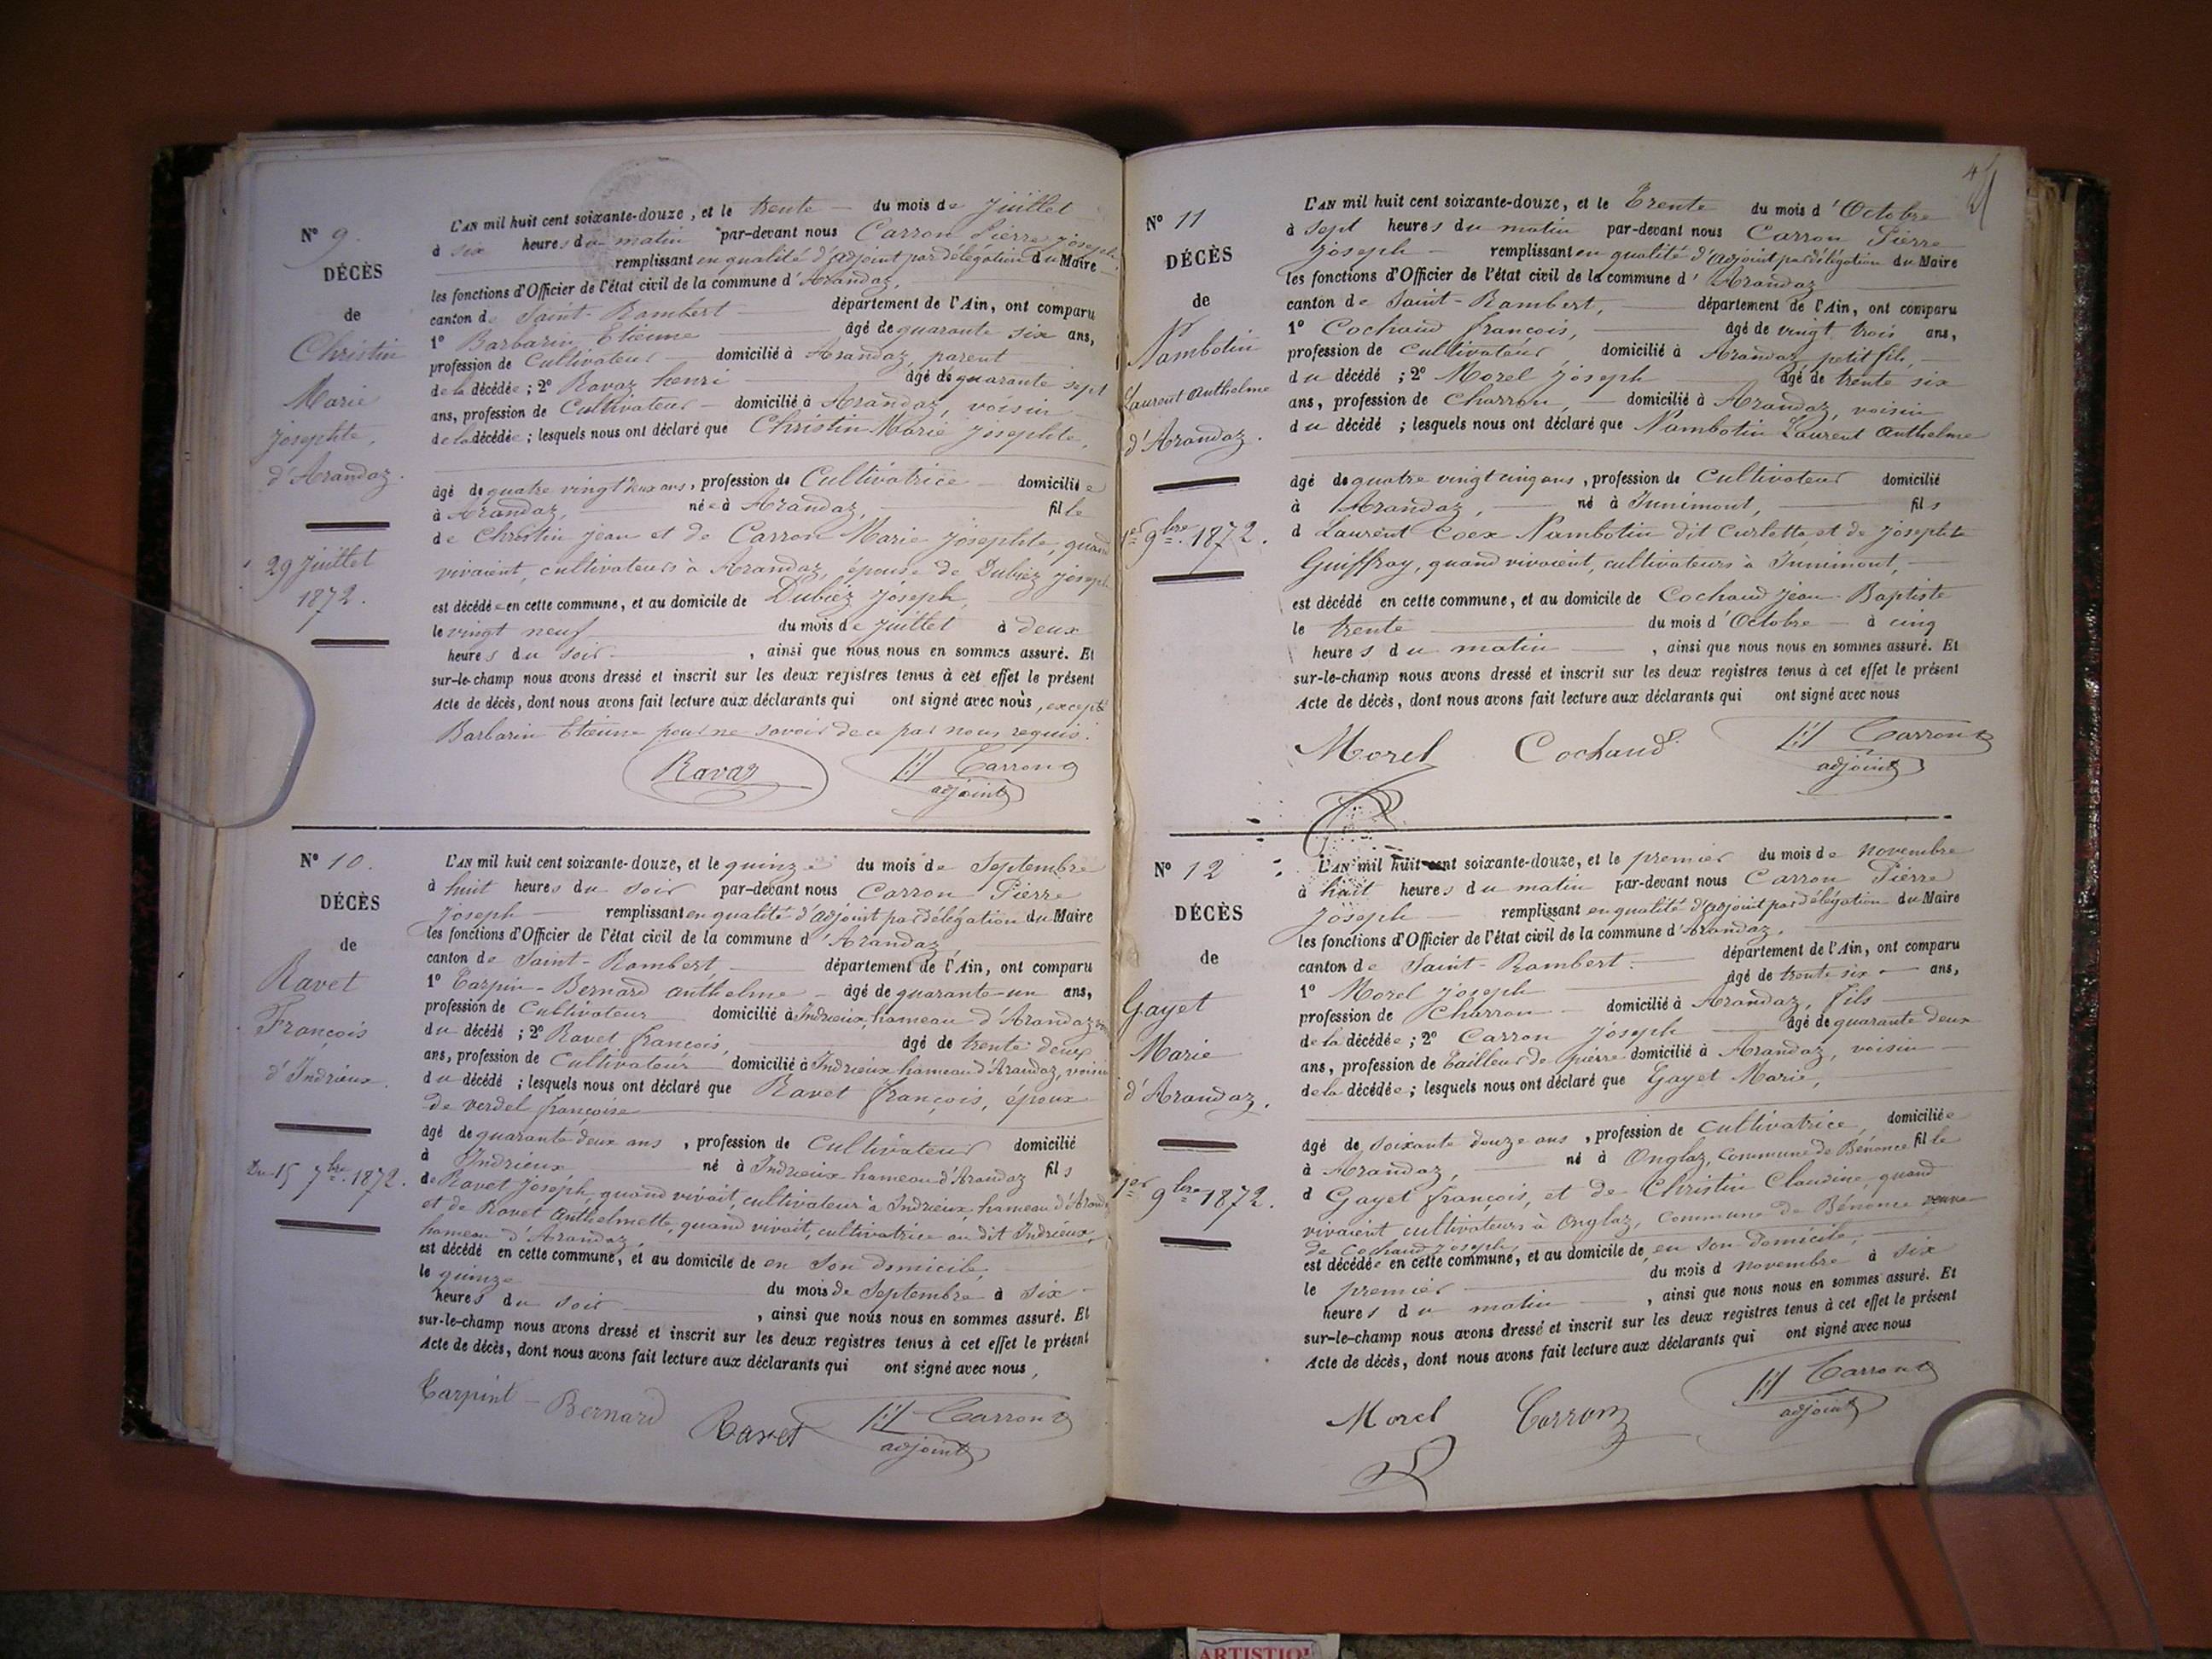 N° 9.
DÉCÈS
de
Christin
Marie
Josephte,
d'Arandaz.
29 Juillet
1872.
L'AN mil huit cent soixante-douze, et le trente du mois de Juillet
à six heures du matin par-devant nous Carron Pierre Joseph,
remplissant en qualité d'adjoint par délégation du Maire
les fonctions d'Officier de l'état civil de la commune d'Arandaz,
canton de Saint-Rambert département de l'Ain, ont comparu
1° Barbarin Etienne âgé de quarante six ans,
profession de Cultivateur domicilié à Arandaz, parent
de la décédée ; 2° Ravaz henri âgé de quarante sept
ans, profession de Cultivateur domicilié à Arandaz, voisin
de la décédée ; lesquels nous ont déclaré que Christin Marie Josephte,
âgé de quatre vingt deux ans, profession de Cultivatrice domiciliée
à Arandaz, née à Arandaz, fille
de Christin Jean et de Carron Marie Josephte, quand
vivaient, cultivateurs à Arandaz, épouse de Dubiez Joseph
est décédée en cette commune, et au domicile de Dubiez Joseph,
le vingt neuf du mois de Juillet à deux
heures du soir, ainsi que nous nous en sommes assuré. Et
sur-le-champ nous avons dressé et inscrit sur les deux registres tenus à cet effet le présent
Acte de décès, dont nous avons fait lecture aux déclarants qui ont signé avec nous, excepté
Barbarin Etienne pour ne savoir de ce par nous requis.
Ravaz Carron
adjoint
N° 10.
DÉCÈS
de
Ravet
François
d'Indrieux.
Du 15 7bre 1872.
L'AN mil huit cent soixante-douze, et le quinze du mois de Septembre
à huit heures du soir par-devant nous Carron Pierre
Joseph remplissant en qualité d'adjoint par délégation du Maire
les fonctions d'Officier de l'état civil de la commune d'Arandaz
canton de Saint-Rambert département de l'Ain, ont comparu
1° Carpin-Bernard anthelme âgé de quarante-un ans,
profession de Cultivateur domicilié à Indrieux, hameau d'Arandaz
du décédé ; 2° Ravet françois, âgé de trente deux
ans, profession de Cultivateur domicilié à Indrieux hameau d'Arandaz, voisin
du décédé ; lesquels nous ont déclaré que Ravet françois, époux
de verdel françoise
âgé de quarante deux ans, profession de Cultivateur domicilié
à Indrieux né à Indrieux hameau d'Arandaz fils
de Ravet Joseph, quand vivait, cultivateur à Indrieux, hameau d'Arandaz
et de Ravet Anthelmette, quand vivait, cultivatrice au dit Indrieux,
hameau d'Arandaz,
est décédé en cette commune, et au domicile de en son domicile,
le quinze du mois de Septembre à six
heures du soir, ainsi que nous nous en sommes assuré. Et
sur-le-champ nous avons dressé et inscrit sur les deux registres tenus à cet effet le présent
Acte de décès, dont nous avons fait lecture aux déclarants qui ont signé avec nous,
Carpint-Bernard Ravet Carron
adjoint
N° 11
DÉCÈS
de
Nambotin
Laurent Anthelme
d'Arandaz.
1er 9bre 1872.
L'AN mil huit cent soixante-douze, et le Trente du mois d'Octobre
à sept heures du matin par-devant nous Carron Pierre
Joseph remplissant en qualité d'adjoint par délégation du Maire
les fonctions d'Officier de l'état civil de la commune d'Arandaz
canton de Saint-Rambert, département de l'Ain, ont comparu
1° Cochaud françois, âgé de vingt trois ans,
profession de cultivateur, domicilié à Arandaz petit fils,
du décédé ; 2° Morel Joseph âgé de trente six
ans, profession de Charron, domicilié à Arandaz, voisin
du décédé ; lesquels nous ont déclaré que Nambotin Laurent Anthelme
âgé de quatre vingt cinq ans, profession de Cultivateur domicilié
à Arandaz, né à Innimont, fils
d Laurent Coex Nambotin dit Curlette, et de Josephte
Guiffray, quand vivaient, cultivateurs à Innimont,
est décédé en cette commune, et au domicile de Cochaud Jean-Baptiste
le trente du mois d'Octobre à cinq
heures du matin, ainsi que nous nous en sommes assuré. Et
sur-le-champ nous avons dressé et inscrit sur les deux registres tenus à cet effet le présent
Acte de décès, dont nous avons fait lecture aux déclarants qui ont signé avec nous
Morel Cochaud Carron
adjoint
N° 12
DÉCÈS
de
Gayet
Marie
d'Arandaz.
1er 9bre 1872.
L'AN mil huit cent soixante-douze, et le premier du mois de novembre
à huit heures du matin par-devant nous Carron Pierre
Joseph remplissant en qualité d'adjoint par délégation du Maire
les fonctions d'Officier de l'état civil de la commune d'Arandaz,
canton de Saint-Rambert. département de l'Ain, ont comparu
1° Morel Joseph âgé de trente six ans,
profession de Charron domicilié à Arandaz, fils
de la décédée ; 2° Carron Joseph âgé de quarante deux
ans, profession de tailleur de pierre domicilié à Arandaz, voisin
de la décédée ; lesquels nous ont déclaré que Gayet Marie,
âgé de soixante douze ans, profession de cultivatrice, domiciliée
à Arandaz, né à Onglaz, commune de Bénonce fille
d Gayet françois, et de Christin Claudine, quand
vivaient cultivateurs à Onglaz, commune de Bénonce veuve
de Cochaud Joseph,
est décédée en cette commune, et au domicile de en son domicile,
le premier du mois d novembre à six
heures du matin, ainsi que nous nous en sommes assuré. Et
sur-le-champ nous avons dressé et inscrit sur les deux registres tenus à cet effet le présent
Acte de décès, dont nous avons fait lecture aux déclarants qui ont signé avec nous
Morel Carron Carron
adjoint